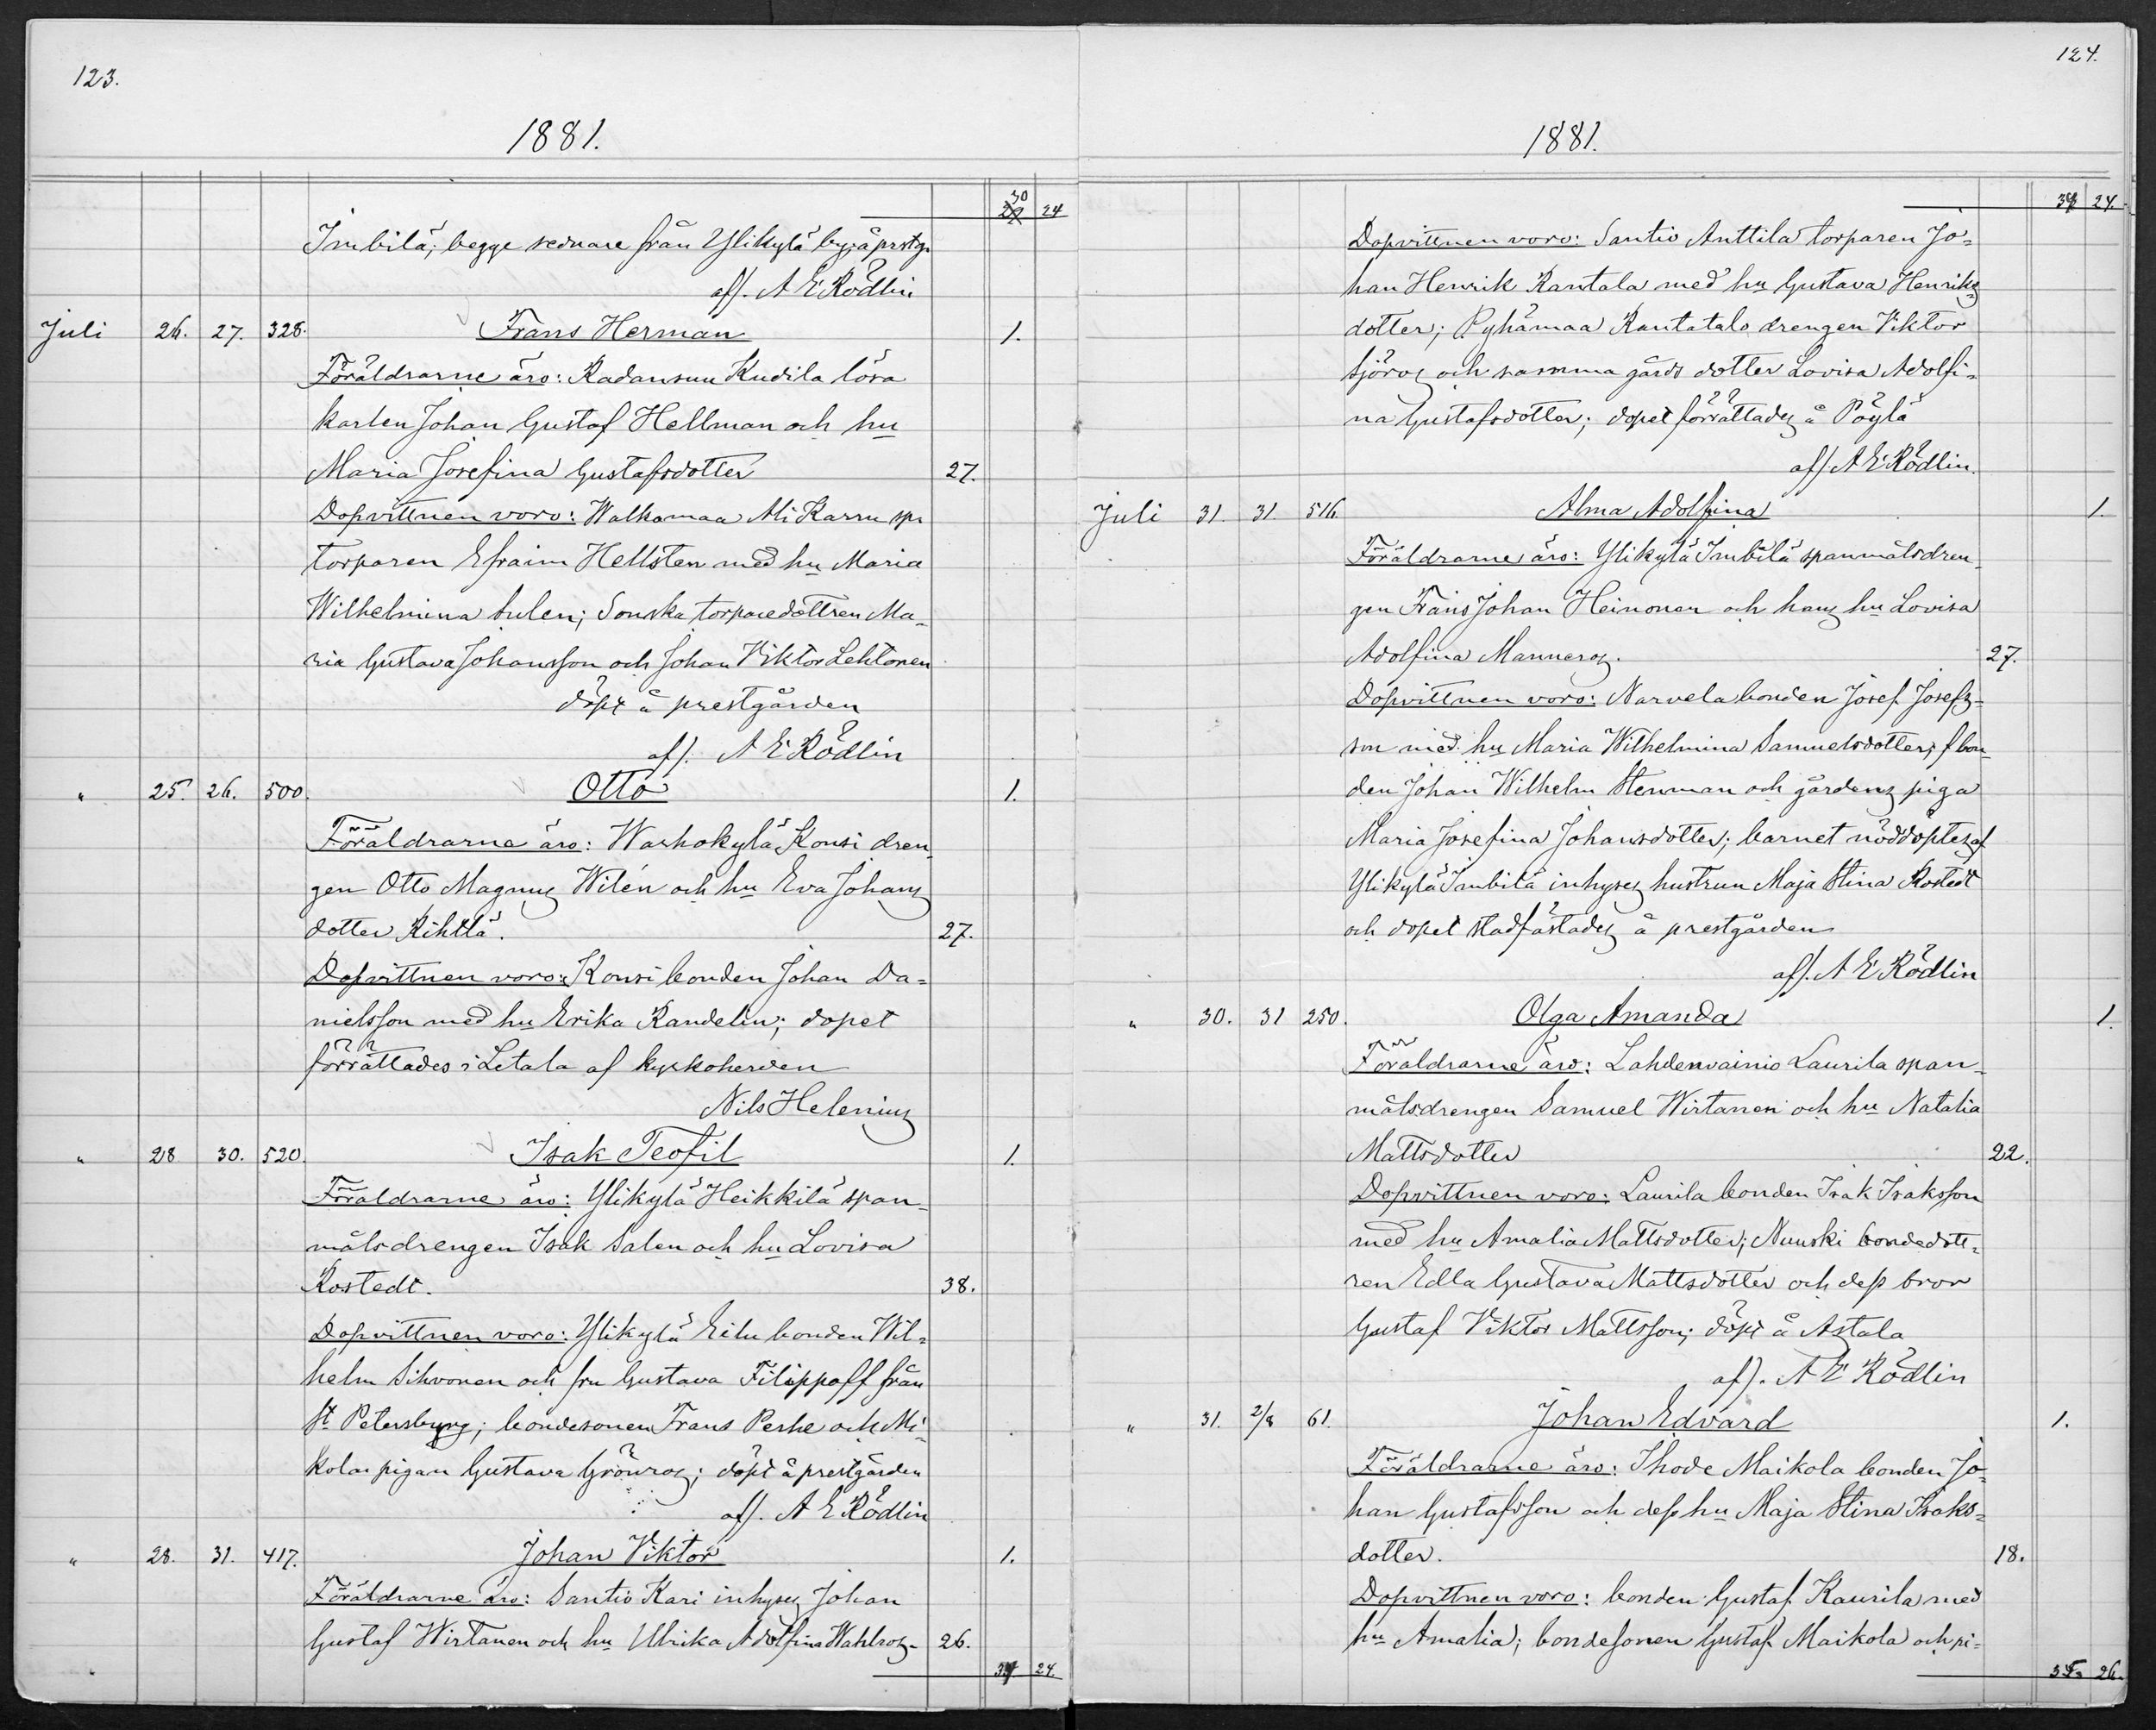 123.
1881.
30
29 24
Imbilä; begge sednare från Ylikylä by; å prstg.
af). A E Rödlin
Juli 26. 27. 328. Frans Herman 1.
Föräldrarne äro: Radansuu Kudila lösa
karlen Johan Gustaf Hellman och hu
Maria Josefina Gustafsdotter 27.
Dopvittnen voro: Walkamaa Ali Karru spr
torparen Efraim Hellsten med hu Maria
Wilhelmina Sulen; Sonska torparedottren Ma-
ria Gustava Johansson och Johan Viktor Lehtonen
döpt å prestgården
af). A E Rödlin
" 25. 26. 500. Otto 1.
Föräldrarne äro: Warhokylä Konsi dren-
gen Otto Magnus Wilén och hu Eva Johans
dotter Rihtlä. 27.
Dopvittnen voro: Konsi bonden Johan Da=
nielsson med hu Erika Randelin; dopet
förrättades i Letala af kyrkoherden
Nils Helenius
" 28 30. 520. Isak Teofil 1.
Föräldrarne äro: Ylikylä Heikkilä span-
målsdrengen Isak Salen och hu Lovisa
Rostedt. 38.
Dopvittnen voro: Ylikylä Eilu bonden Wil=
helm Sihvonen och fru Gustava Filippoff från
St Petersburg; bondesonen Frans Perhe och Mi-
kola pigan Gustava Grönros; döpt å prestgården
af). A E Rödlin
" 28. 31. 417. Johan Viktor 1.
Föräldrarne äro: Santio Kari inhyses Johan
Gustaf Wirtanen och hu Ulrika Adolfina Wahlros. 26.
34 24.
124.
1881.
34 24.
Dopvittnen voro: Santio Anttila torparen Jo=
han Henrik Rantala med hu Gustava Henriks
dotter; Pyhämaa Rantatalo drengen Viktor
Sjöros och samma gårds dotter Lovisa Adolfi=
na Gustafsdotter; dopet förrättades å Pöylä
af). A E Rödlin.
Juli 31. 31. 516. Alma Adolfina 1.
Föräldrarne äro: Ylikylä Imbilä spanmålsdren-
gen Frans Johan Heinonen och hans hu Lovisa
Adolfina Manneros. 27.
Dopvittnen voro: Narvela bonden Josef Josefs=
son med hu Maria Wilhelmina Samuelsdotter; f bon
den Johan Wilhelm Stenman och gårdens piga
Maria Josefina Johansdotter; barnet nöddöptes af
Ylikylä Imbilä inhyses hustrun Maja Stina Rostedt
och dopet stadfästades å prestgården
af). A E Rödlin
" 30. 31 250. Olga Amanda 1.
Föräldrarne äro: Lahdenvainio Laurila span-
målsdrengen Samuel Wirtanen och hu Natalia
Mattsdotter 22.
Dopvittnen voro: Laurila bonden Isak Isaksson
med hu Amalia Mattsdotter; Nuuski bondedott=
ren Edla Gustava Mattsdotter och dess bror
Gustaf Viktor Mattsson; döpt å Astala
af). A E Rödlin
" 31. 2/8 61. Johan Edvard 1.
Föräldrarne äro: Ihode Maikola bonden Jo-
han Gustafsson och dess hu Maja Stina Isaks=
dotter. 18.
Dopvittnen voro: bonden Gustaf Kaurila med
hu Amalia; bondesonen Gustaf Maikola och pi=
35. 26.